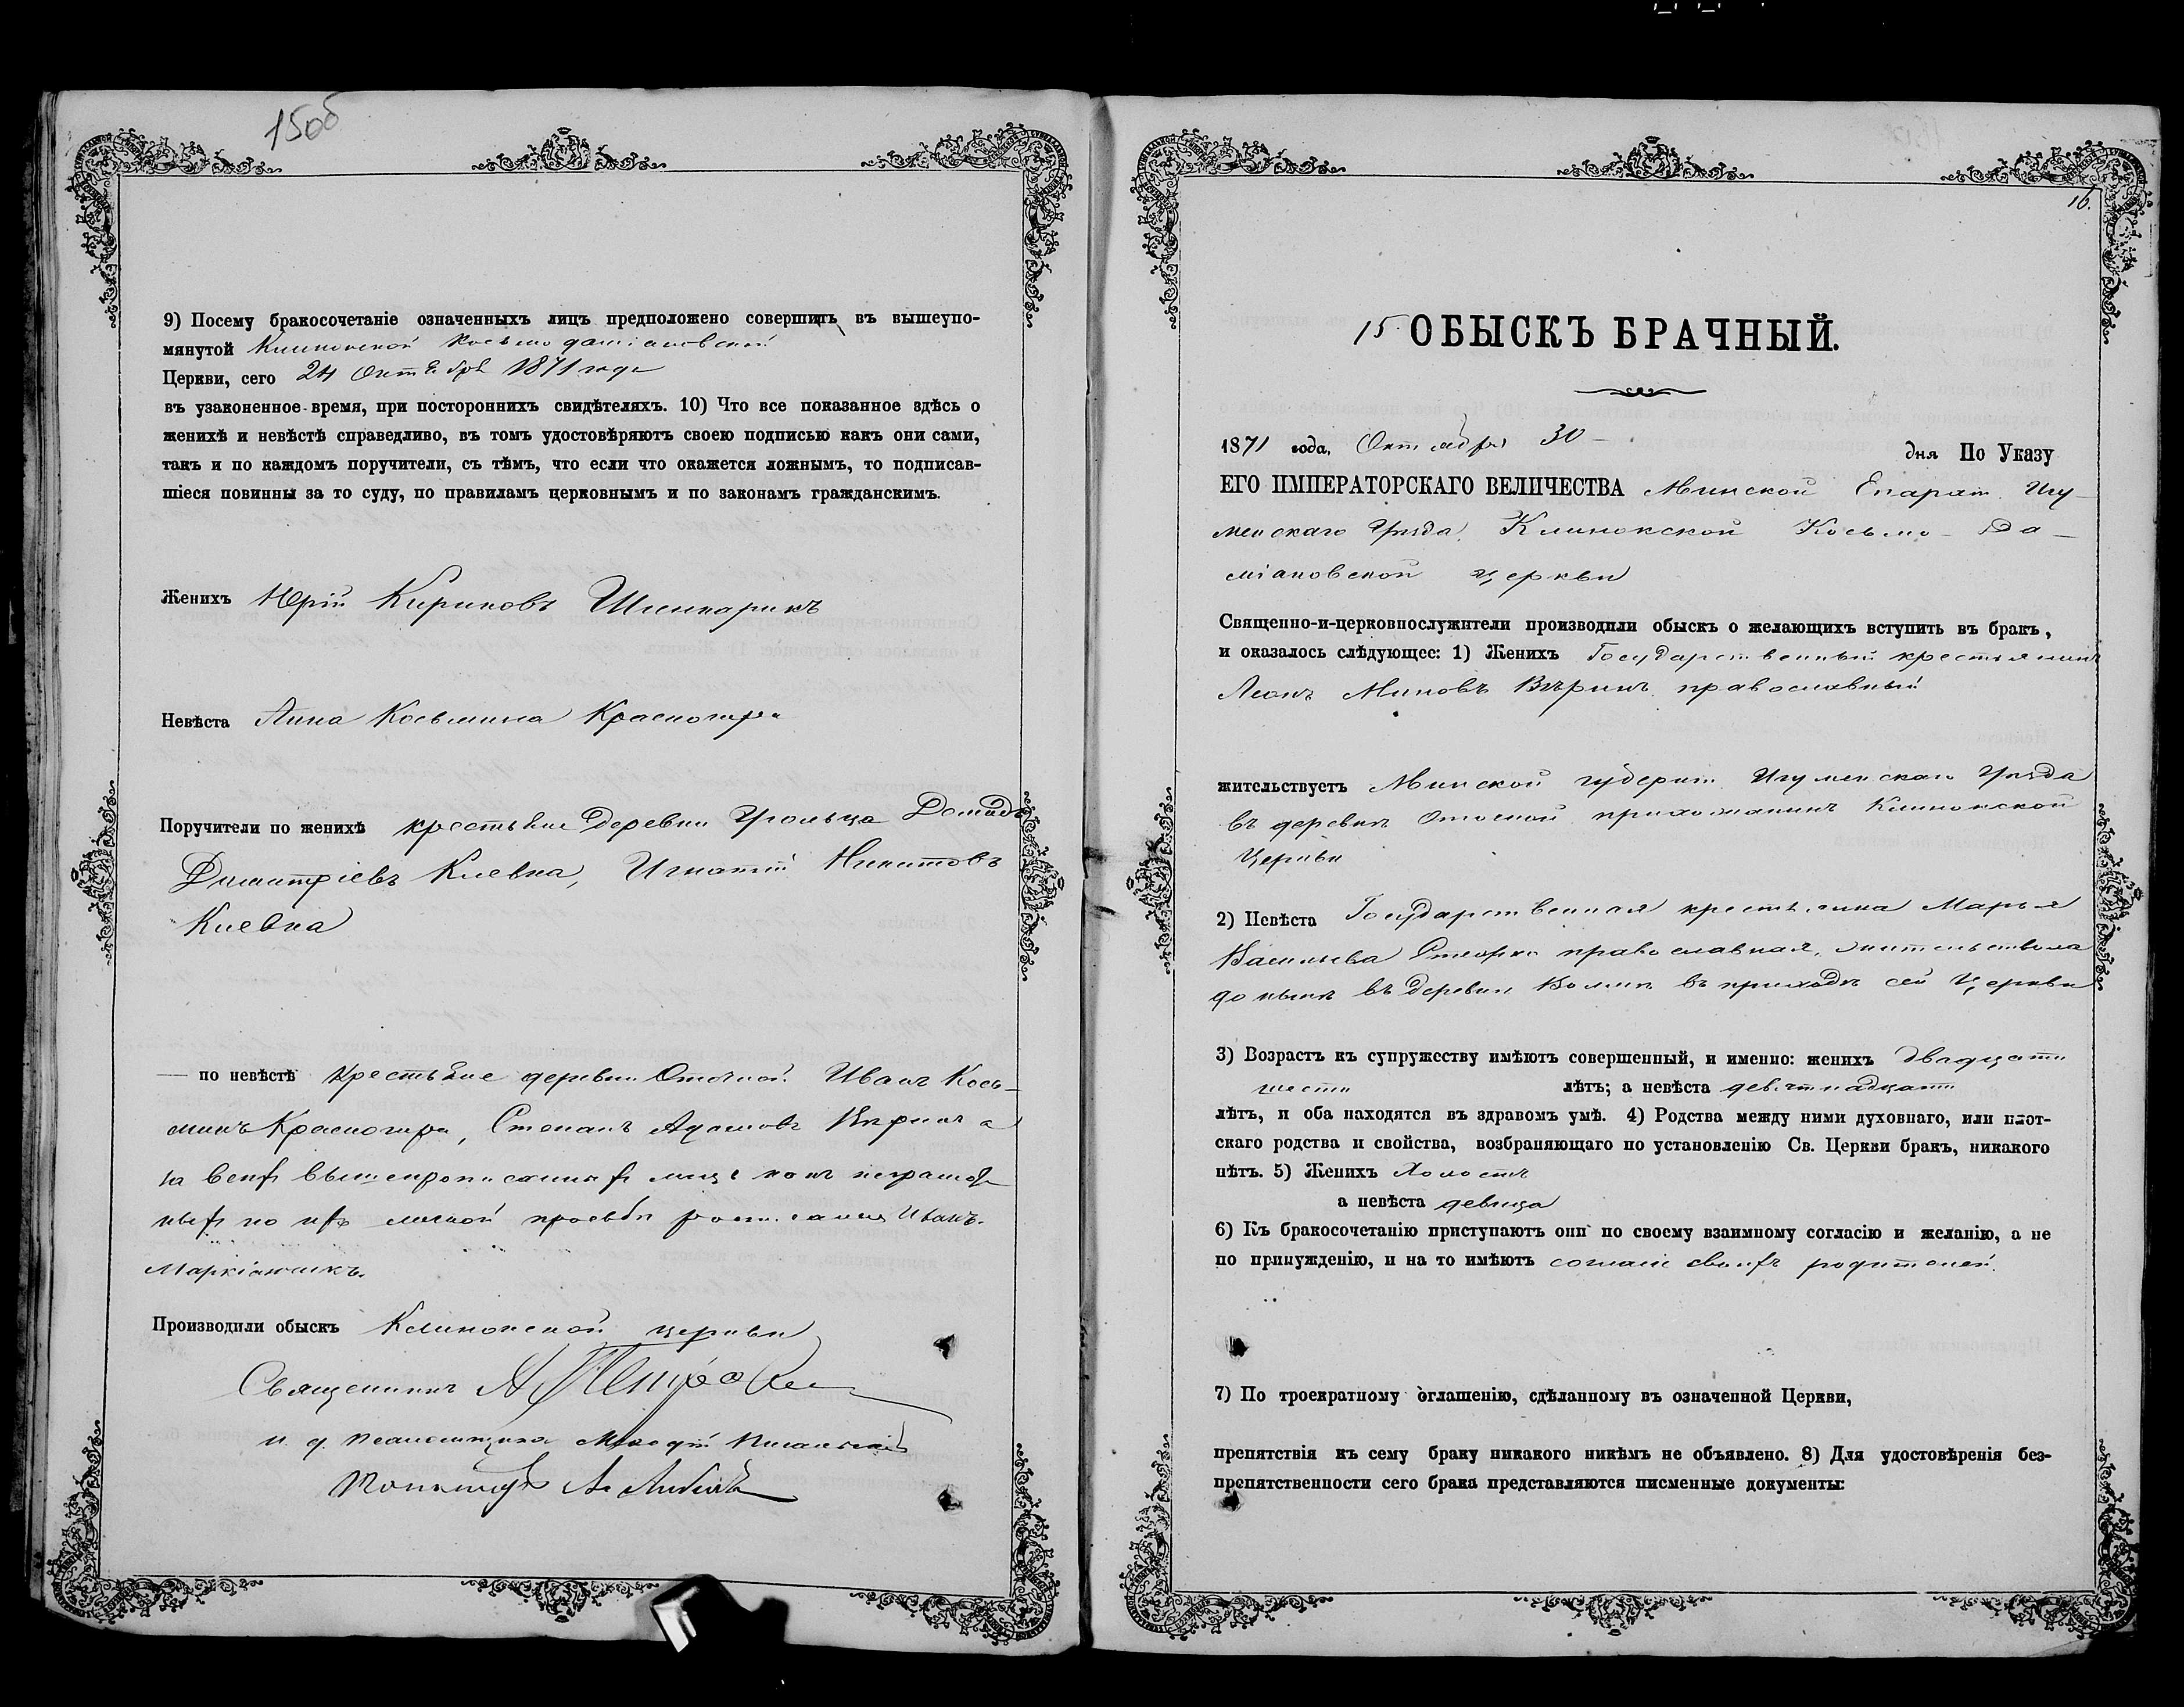 150б
9) Посему бракосочетаніе означенныхъ лицъ предположено совершить въ вышеупо-
мянутой Клинокской Косьмо даміановской
Церкви, сего 24 Октября 1871 года
въ узаконенное время, при постороннихъ свидѣтеляхъ. 10) Что все показанное здѣсь о
женихѣ и невѣстѣ справедливо, въ томъ удостовѣряютъ своею подписью какъ они сами,
такъ и по каждомъ поручители, съ тѣмъ, что если что окажется ложнымъ, то подписав-
шіеся повинны за то суду, по правиламъ церковнымъ и по законамъ гражданскимъ.
Женихъ Юрій Кириковъ
Невѣста Анна Косьмина
Поручители по женихѣ крестьяне деревни Демидъ
Димитріевъ Клевка, Игнатій Никитовъ
Клевка
— по невѣстѣ Крестьяне деревни Оточной Иванъ Кось-
минъ Степанъ Адамовъ Вѣринъ а
за всѣхъ вышепрописанныхъ лицъ какъ неграмот
ныхъ по ихъ личной просьбѣ росписался Иванъ
Производили обыскъ Клинокской церкви
Священникъ
и. д. псаломщика
Пономарь
16.
15. ОБЫСКЪ БРАЧНЫЙ.
1871 года, Октября 30 — дня По Указу
ЕГО ИМПЕРАТОРСКАГО ВЕЛИЧЕСТВА Минской Епархіи Игу-
менскаго Уѣзда, Клинокской Косьмо-Да-
міановской церкви
Священно-и-церковнослужители производили обыскъ о желающихъ вступить въ бракъ,
и оказалось слѣдующее: 1) Женихъ Государственный крестьянинъ
Леонъ Миновъ Вѣринъ православный
жительствуетъ Минской губерніи Игуменскаго Уѣзда
въ деревнѣ Оточной прихожанинъ Клинокской
Церкви
2) Невѣста Государственная крестьянка Марья
Васильева православная, жительствовала
до нынѣ въ деревни въ приходѣ сей Церкви
3) Возрастъ къ супружеству имѣютъ совершенный, и именно: женихъ двадцати
шести лѣтъ; а невѣста девятнадцати
лѣтъ, и оба находятся въ здравомъ умѣ. 4) Родства между ними духовнаго, или плот-
скаго родства и свойства, возбраняющаго по установленію Св. Церкви бракъ, никакого
нѣтъ. 5) Женихъ Холостъ
а невѣста девица
6) Къ бракосочетанію приступаютъ они по своему взаимному согласію и желанію, а не
по принужденію, и на то имѣютъ согласіе своихъ родителей.
7) По троекратному оглашенію, сдѣланному въ означенной Церкви,
препятствія къ сему браку никакого никѣмъ не объявлено. 8) Для удостовѣренія без-
препятственности сего брака представляются писменные документы: